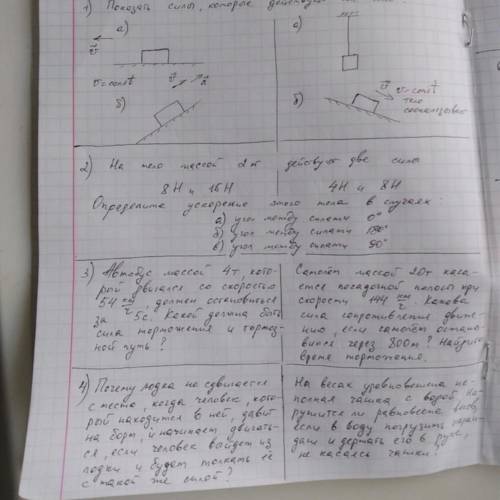 1) Показать силы, которые действуют на тело
а)
v
v=const
v
a
б)
а)
б)
v
v=const
тело
соскальзывает
2) На тело массой 2 кг действуют две силы
8Н и 16Н
4Н и 8Н
Определите ускорение этого тела в случаях
а) угол между силами 0°
б) угол между силами 180°
в) угол между силами 90°
3) Автобус массой 4т, кото-
рый двигался со скоростью
54 км/ч, должен остановиться
за 5с. Какой должна быть
сила торможения и тормоз-
ной путь?
Самолёт массой 20т каса-
ется посадочной полосы при
скорости 144 км/ч. Какова
сила сопротивления движе-
нию, если самолёт остано-
вился через 800м? Найдите
время торможения.
4) Почему лодка не сдвигается
с места, когда человек, кото-
рой находится в ней, давит
на борт, и начинает двигать-
ся, если человек выйдет из
лодки и будет толкать её
с такой же силой?
На весах уравновешена не-
полная чашка с водой. На-
рушится ли равновесие весов,
если в воду погрузить каран-
даш и держать его в руке,
не касаясь чашки?